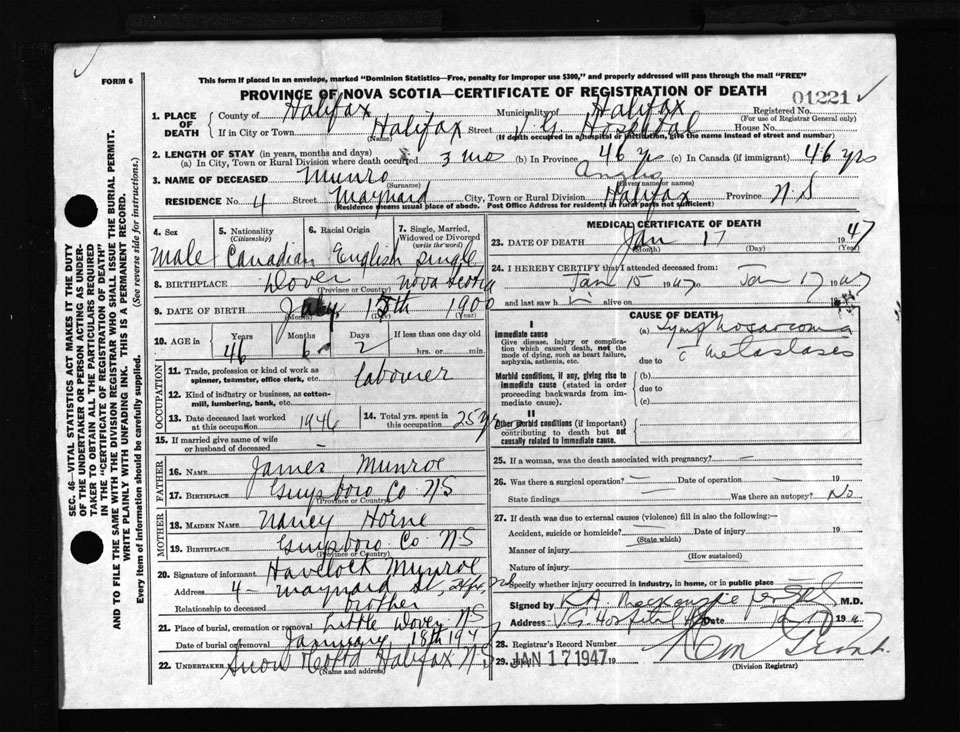 FORM 6
This form if placed in an envelope, marked "Dominion Statistics—Free, penalty for improper use $300," and properly addressed will pass through the mail "FREE"
PROVINCE OF NOVA SCOTIA—CERTIFICATE OF REGISTRATION OF DEATH
01221
1. PLACE OF DEATH County of Halifax Municipality of Halifax Registered No.
(For use of Registrar General only)
If in City or Town Halifax Street V G Hospital House No.
(Name) (If death occurred in a hospital or institution, give the name instead of street and number)
2. LENGTH OF STAY (in years, months and days)
(a) In City, Town or Rural Division where death occurred 3 mos (b) In Province 46 yrs (c) In Canada (if immigrant) 46 yrs
3. NAME OF DECEASED Munro Angus
(Surname) (Given name or names)
RESIDENCE No. 4 Street Maynard City, Town or Rural Division Halifax Province N S
(Residence means usual place of abode. Post Office Address for residents in rural parts not sufficient)
4. Sex 5. Nationality (Citizenship) 6. Racial Origin 7. Single, Married, Widowed or Divorced (write the word)
male Canadian English Single
8. BIRTHPLACE Dover Nova Scotia
(Province or Country)
9. DATE OF BIRTH 15th 1900
(Month) (Day) (Year)
10. AGE in Years Months Days If less than one day old
46 6 2 hrs. or min.
OCCUPATION
11. Trade, profession or kind of work as spinner, teamster, office clerk, etc. labourer
12. Kind of industry or business, as cotton-mill, lumbering, bank, etc.
13. Date deceased last worked at this occupation 1946 14. Total yrs. spent in this occupation 25 yrs
15. If married give name of wife or husband of deceased –
FATHER
16. NAME James Munroe
17. BIRTHPLACE Guysboro Co NS
(Province or Country)
MOTHER
18. MAIDEN NAME Nancy Horne
19. BIRTHPLACE Guysboro Co N S
(Province or Country)
20. Signature of informant Havelock Munroe
Address 4 – Maynard St, Hfx, NS
Relationship to deceased brother
21. Place of burial, cremation or removal Little Dover NS
Date of burial or removal January 18th 1947
22. Undertaker Snow Co Ltd Halifax N S
(Name and address)
MEDICAL CERTIFICATE OF DEATH
23. DATE OF DEATH Jan 17 1947
(Month) (Day) (Year)
24. I HEREBY CERTIFY that I attended deceased from:
Jan 15 1947 to Jan 17 1947
and last saw h alive on 19
CAUSE OF DEATH
I
Immediate cause
Give disease, injury or complication which caused death, not the mode of dying, such as heart failure, asphyxia, asthenia, etc.
(a) Lymphosarcoma
due to c metastases
Morbid conditions, if any, giving rise to immediate cause (stated in order proceeding backwards from immediate cause).
(b)
due to
(c)
II
Other morbid conditions (if important) contributing to death but not causally related to immediate cause.
25. If a woman, was the death associated with pregnancy? –
26. Was there a surgical operation? – Date of operation – 19
State findings Was there an autopsy? No
27. If death was due to external causes (violence) fill in also the following:—
Accident, suicide or homicide? Date of injury 19
(State which)
Manner of injury
(How sustained)
Nature of injury
Specify whether injury occurred in industry, in home, or in public place
Signed by K.A. MacKenzie per M.D.
Address V.G. Hospital Date Jan 17 1947
28. Registrar's Record Number
29. Filed JAN 17 1947 19
(Division Registrar)
SEC. 46—VITAL STATISTICS ACT MAKES IT THE DUTY OF THE UNDERTAKER OR PERSON ACTING AS UNDERTAKER TO OBTAIN ALL THE PARTICULARS REQUIRED IN THE "CERTIFICATE OF REGISTRATION OF DEATH"
AND TO FILE THE SAME WITH THE DIVISION REGISTRAR WHO SHALL ISSUE THE BURIAL PERMIT.
WRITE PLAINLY WITH UNFADING INK. THIS IS A PERMANENT RECORD.
Every item of information should be carefully supplied. (See reverse side for instructions.)